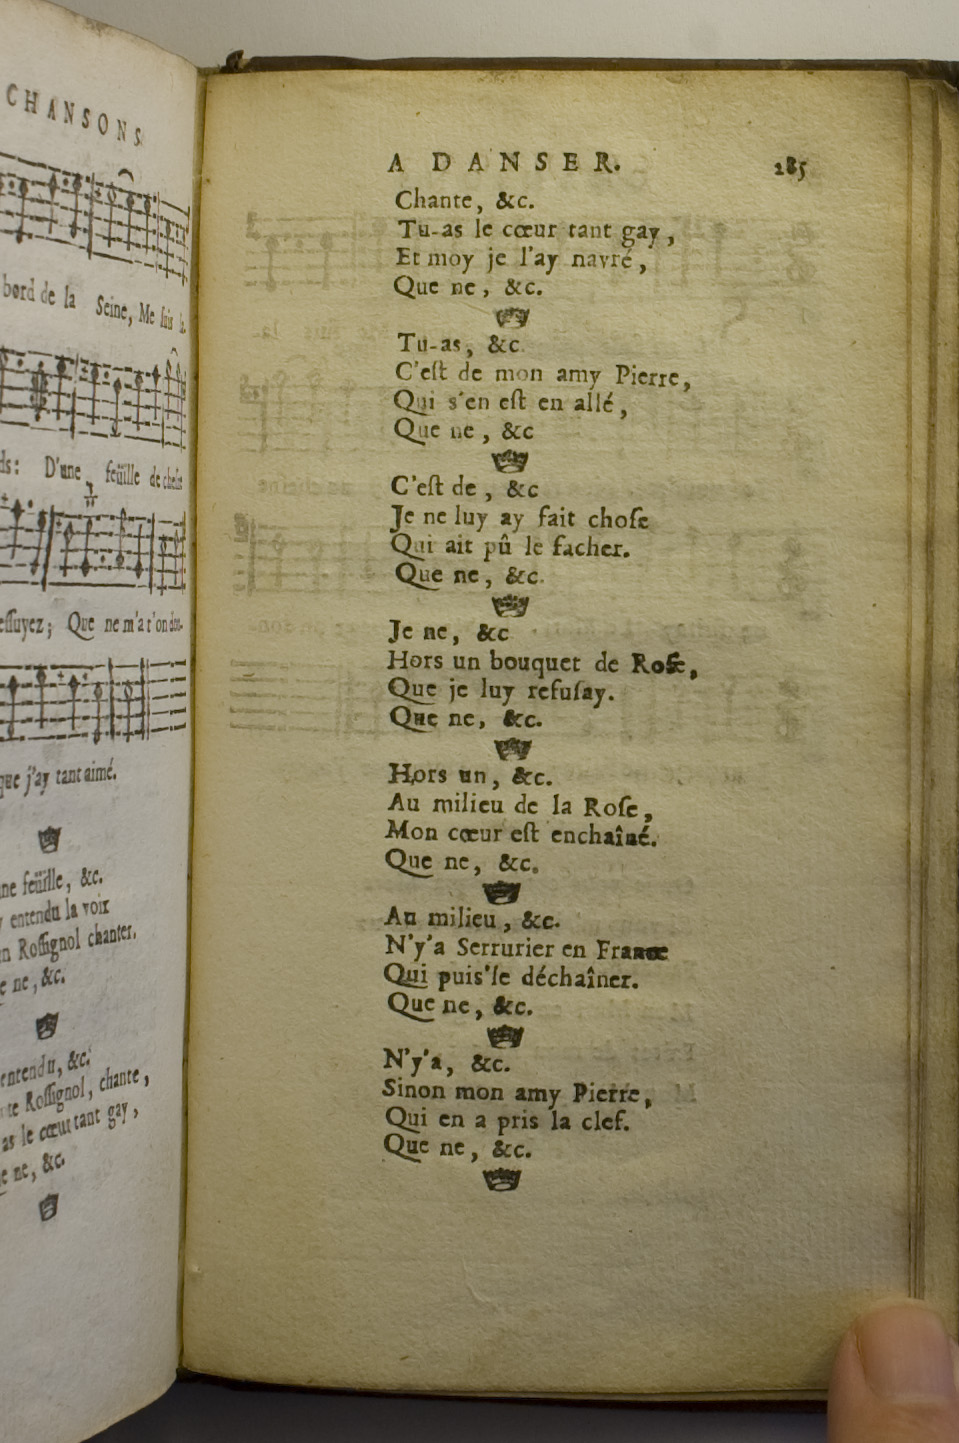 CHANSONS
bord de la Seine, Me fais
D'une feüille de chesne
essuyez; Que ne m'a t'on don-
que j'ay tant aimé.
feüille, &c.
entendu la voix
Rossignol chanter.
ne, &c.
entendu, &c.
Rossignol, chante,
as le cœur tant gay,
ne, &c.
A DANSER. 185
Chante, &c.
Tu-as le cœur tant gay,
Et moy je l'ay navré,
Que ne, &c.
Tu-as, &c.
C'eſt de mon amy Pierre,
Qui s'en eſt en allé,
Que ne, &c
C'eſt de, &c
Je ne luy ay fait choſe
Qui ait pû le facher.
Que ne, &c.
Je ne, &c
Hors un bouquet de Roſe,
Que je luy refuſay.
Que ne, &c.
Hors un, &c.
Au milieu de la Roſe,
Mon cœur eſt enchaîné.
Que ne, &c.
Au milieu, &c.
N'y'a Serrurier en France
Qui puis'ſe déchaîner.
Que ne, &c.
N'y'a, &c.
Sinon mon amy Pierre,
Qui en a pris la clef.
Que ne, &c.